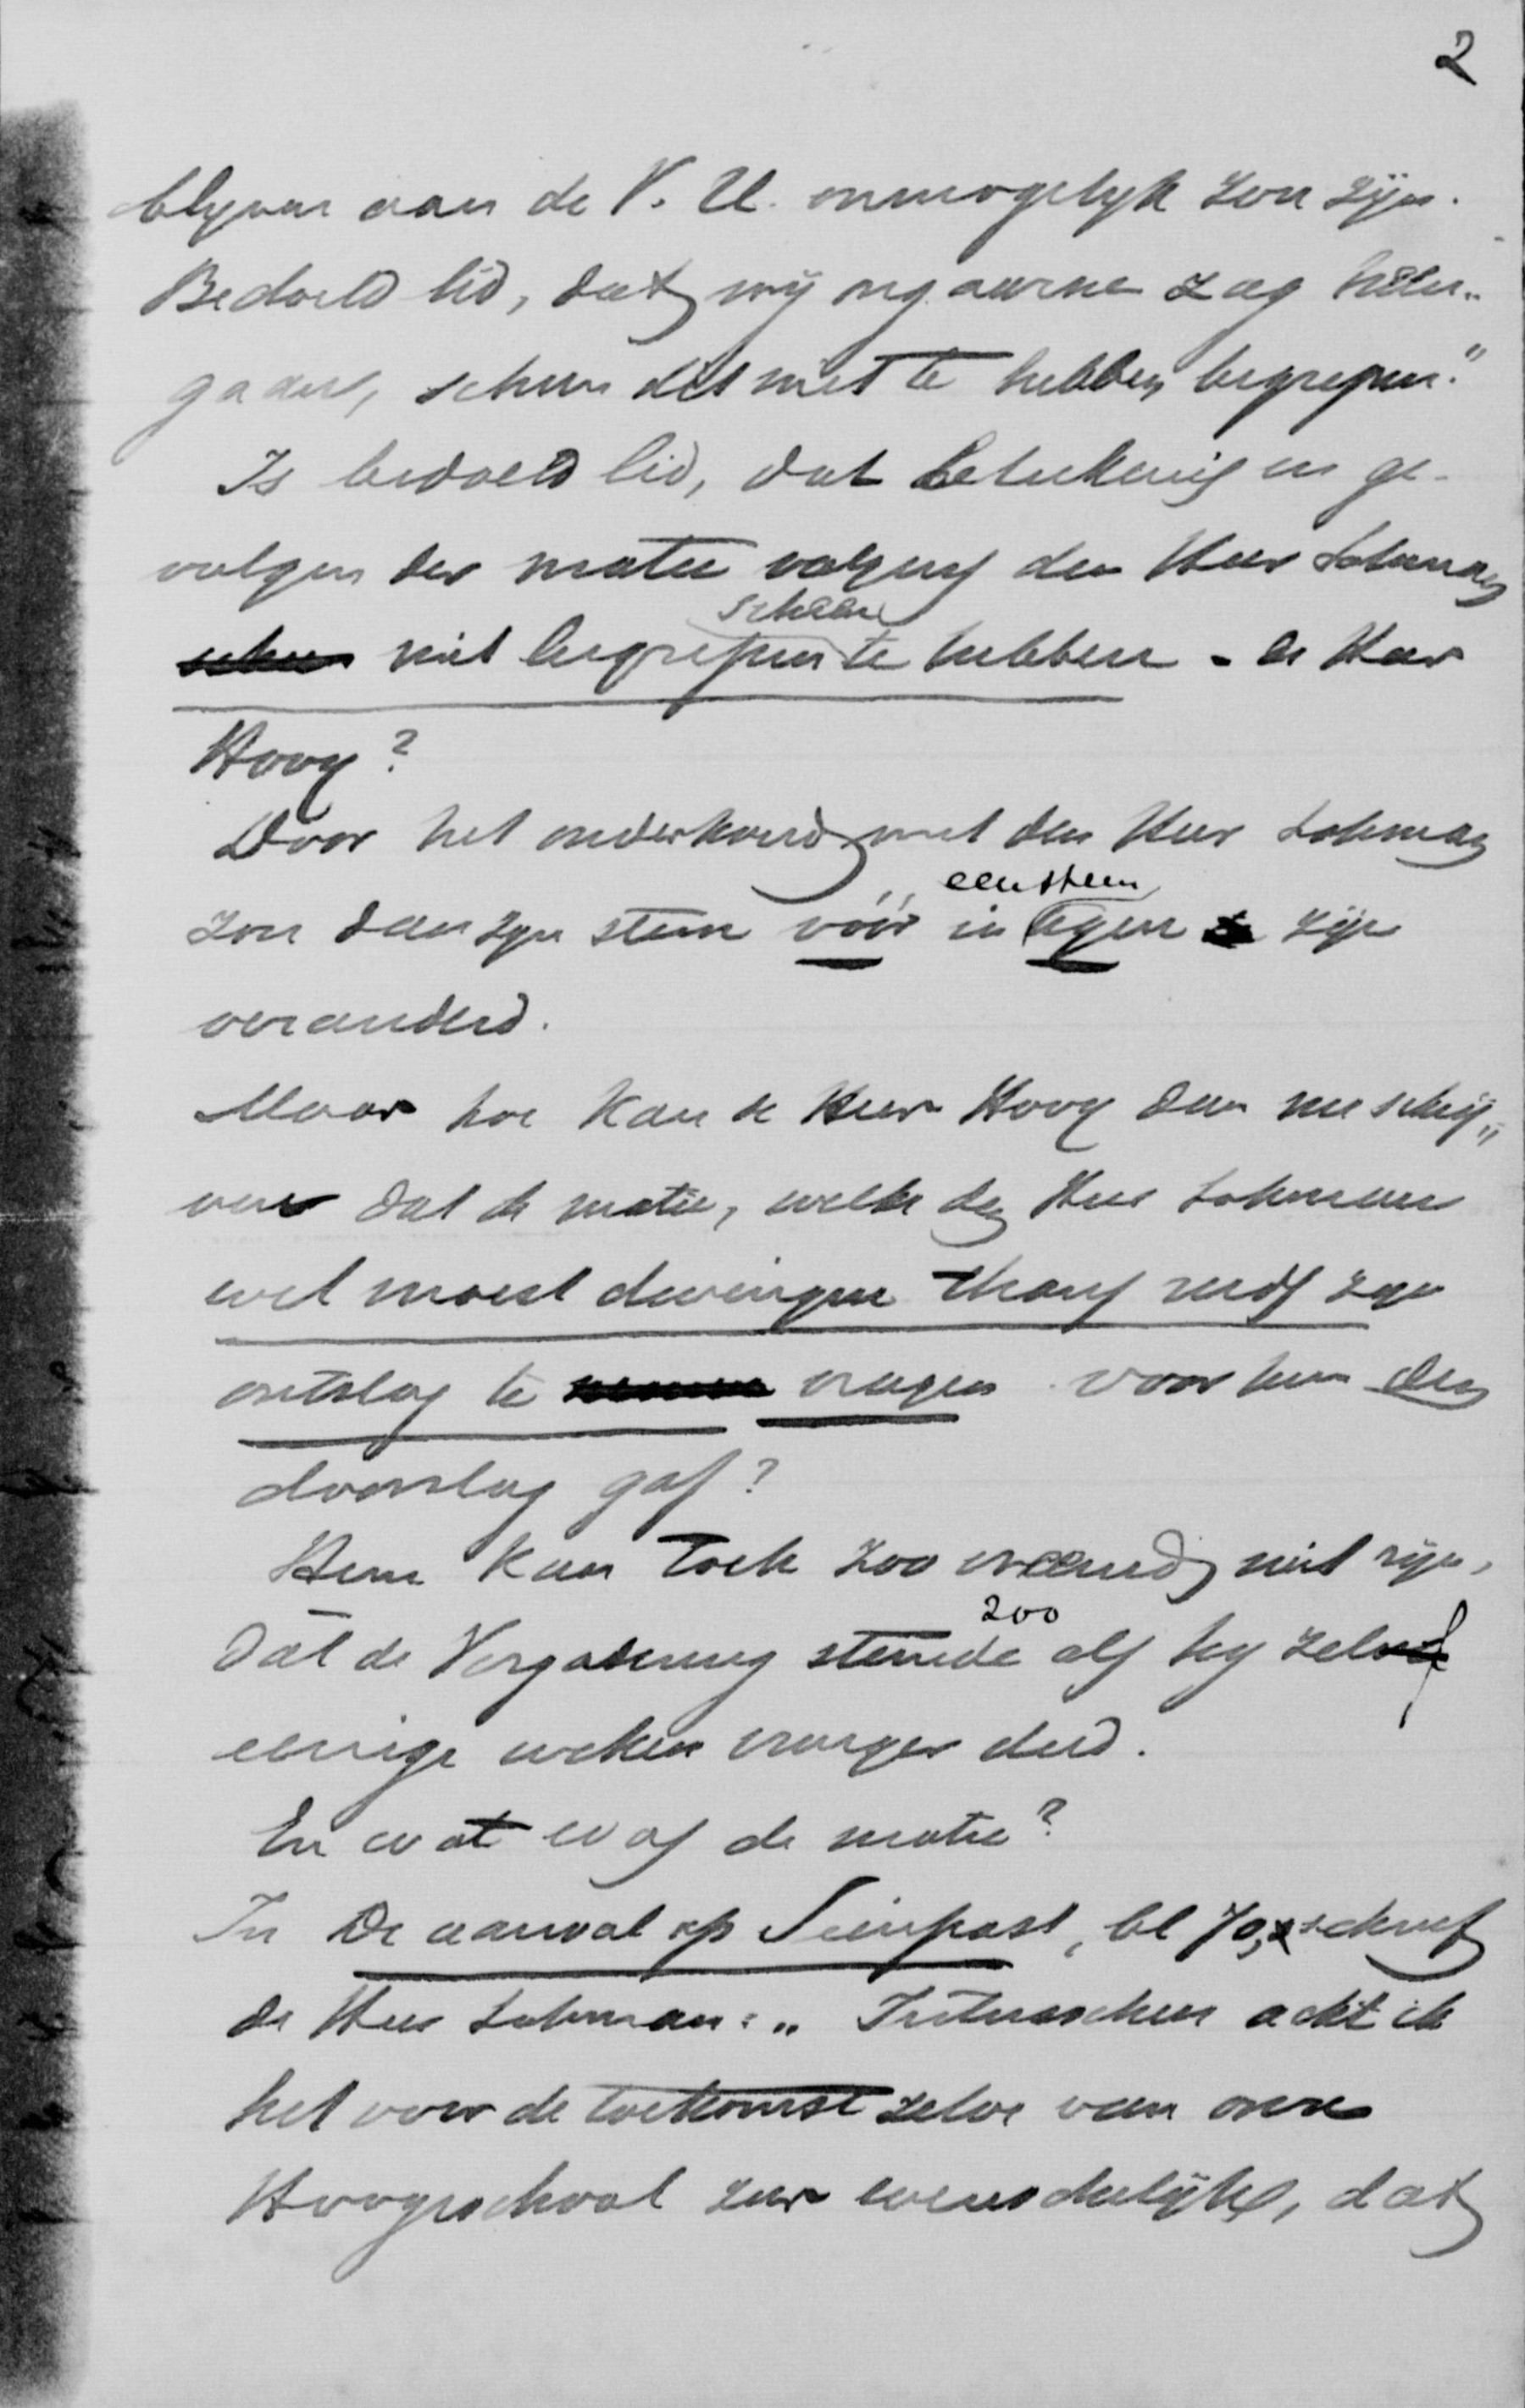 2
blijven aan de V. U. onmogelijk zou zijn.
Bedoeld lid, dat mij ongaarne zag heen„
gaan, scheen dit niet te hebben begrepen."
Is bedoeld lid, dat beteekenis en ge-
volgen der motie volgens den Heer Lohman
scheen
niet begrepen te hebben - de Heer
Hovy?
Door het onderhoud met den Heer Lohman
een stem
zou dan zijn stem vóór in tegen zijn
veranderd.
Maar hoe kan de Heer Hovy dan nu schrij„
ven dat de motie, welke den Heer Lohman
wel moest dwingen thans reeds zijn
ontslag te vragen voor hem den
doorslag gaf?
Hem kan toch zoo vreemd niet zijn,
zoo
dat de Vergadering stemde als hij zelf
eenige weken vroeger deed.
En wat was de motie?
In De aanval op Seinpost, bl 70, schreef
de Heer Lohman: „Intusschen acht ik
het voor de toekomst zelve van onze
Hoogeschool zeer wenschelijk, dat